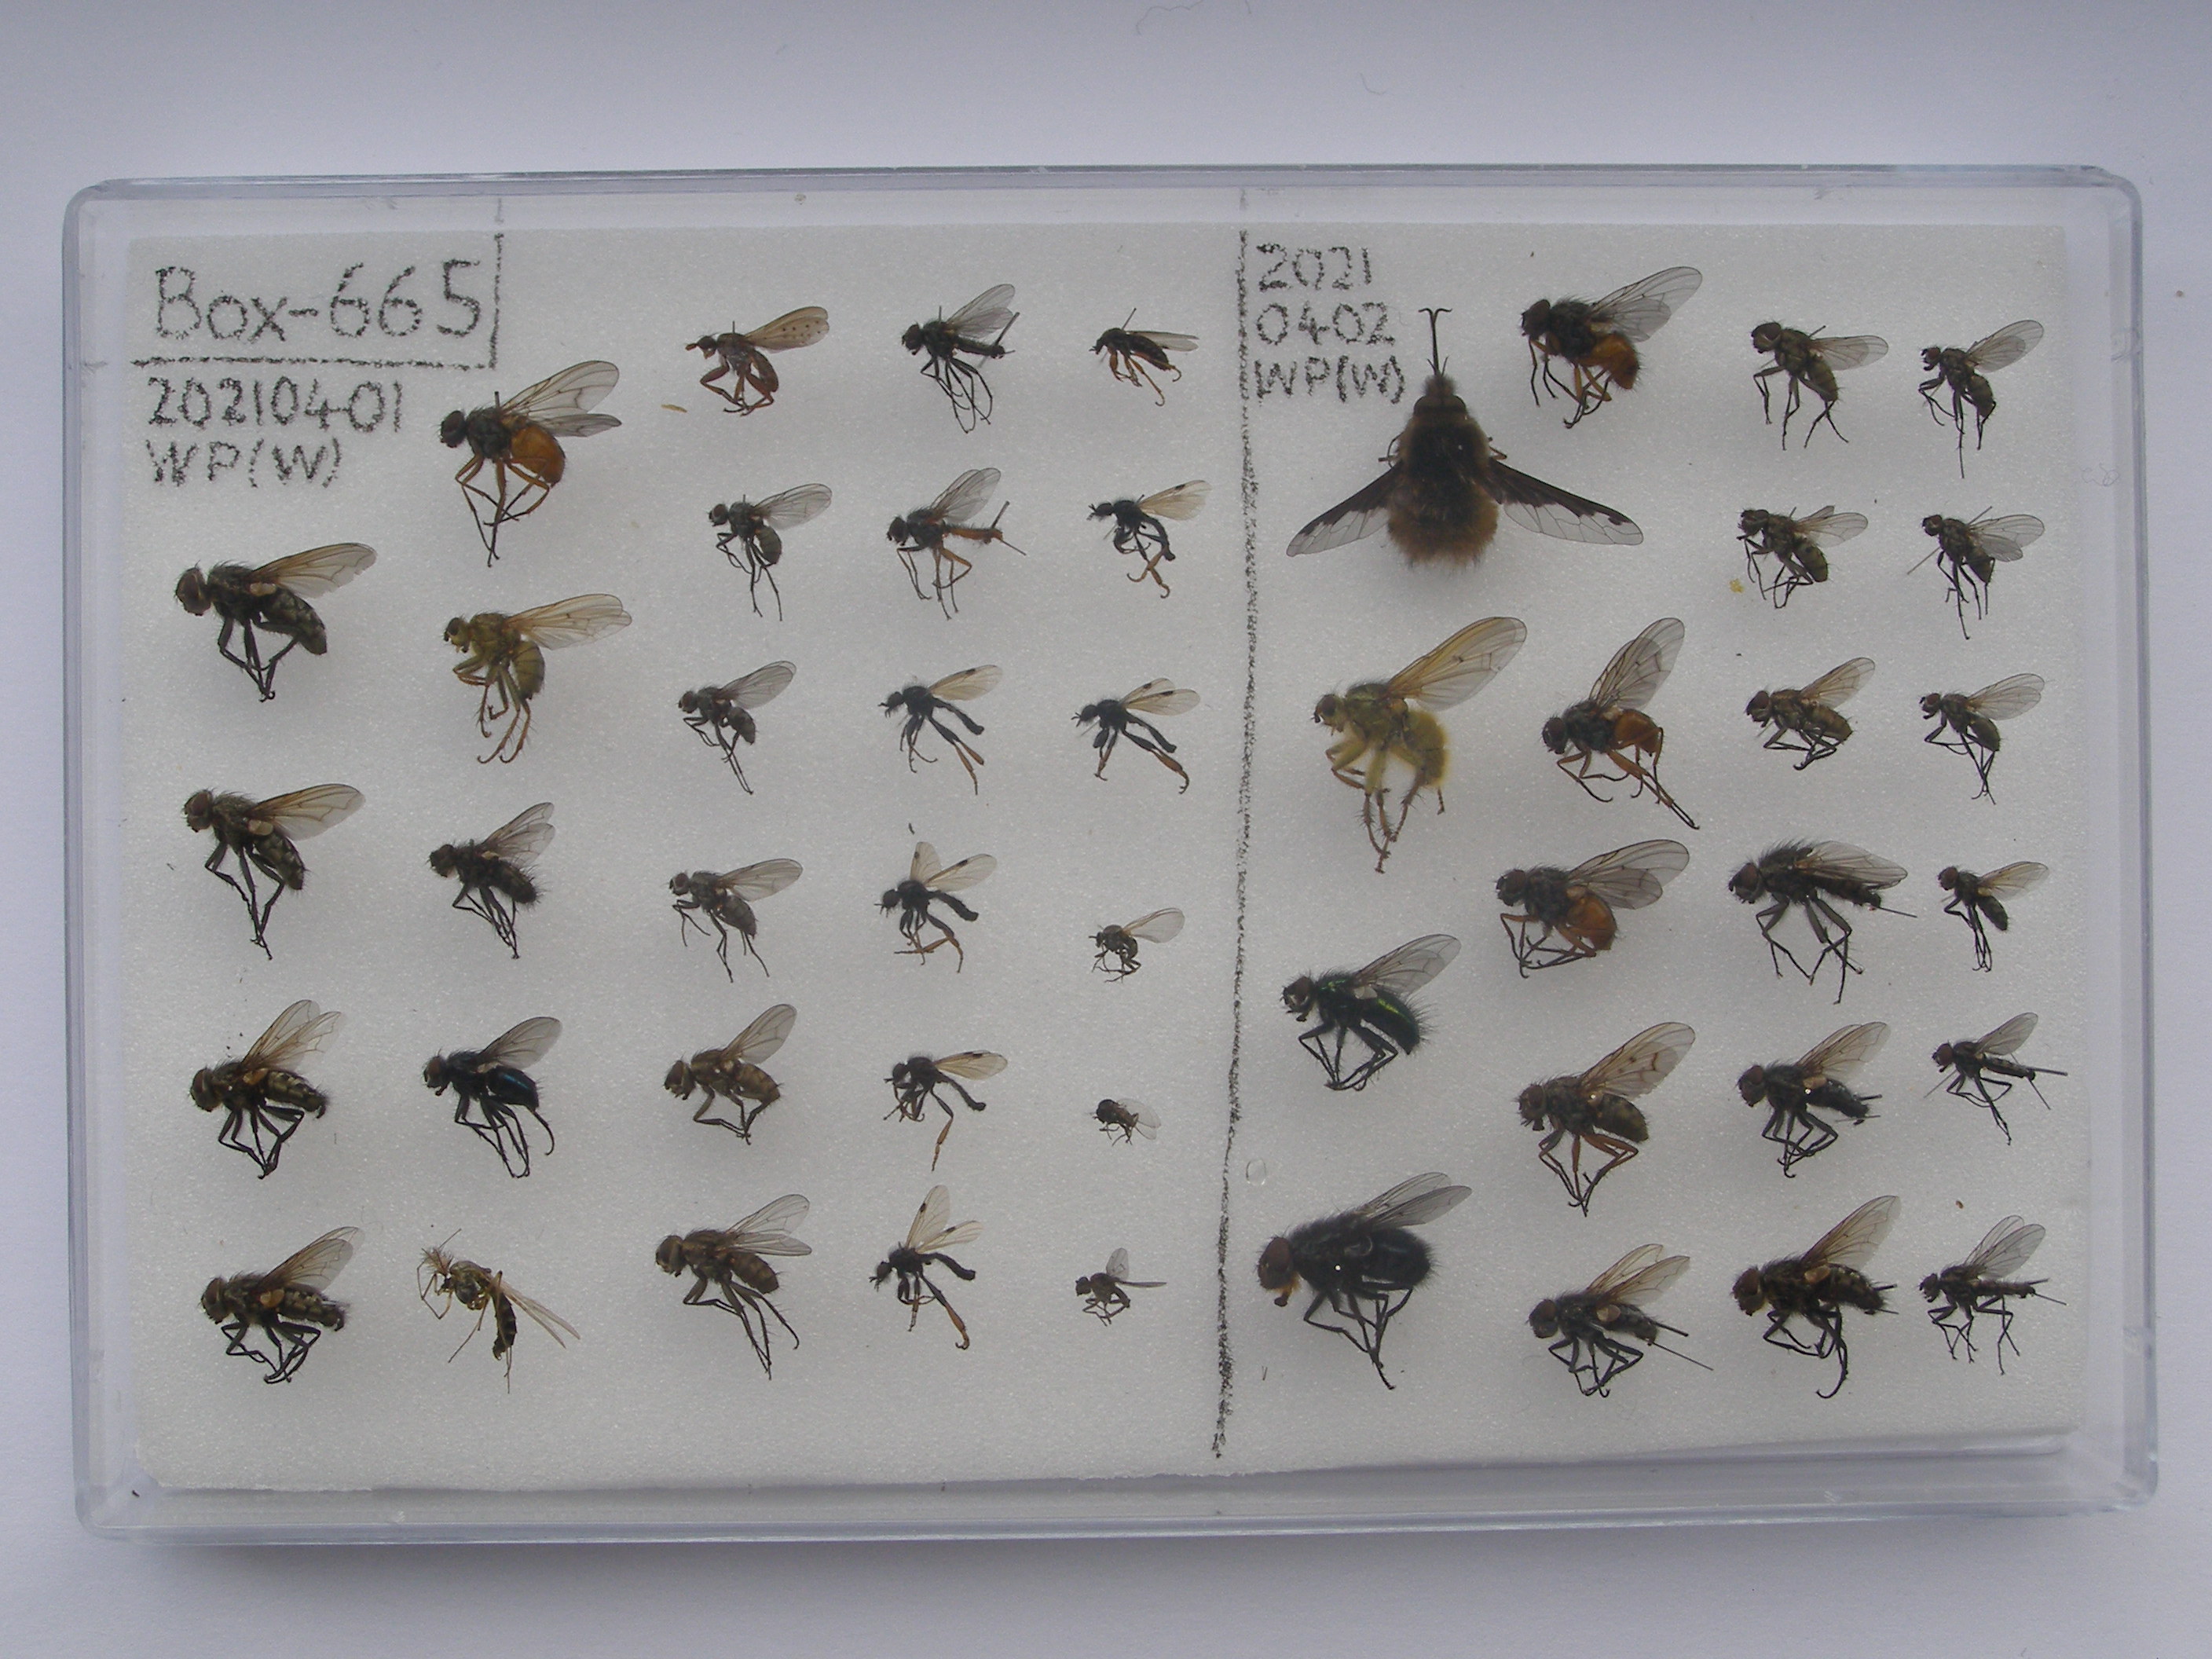 Box-665
20210401
WP(W)
2021
0402
WP(W)